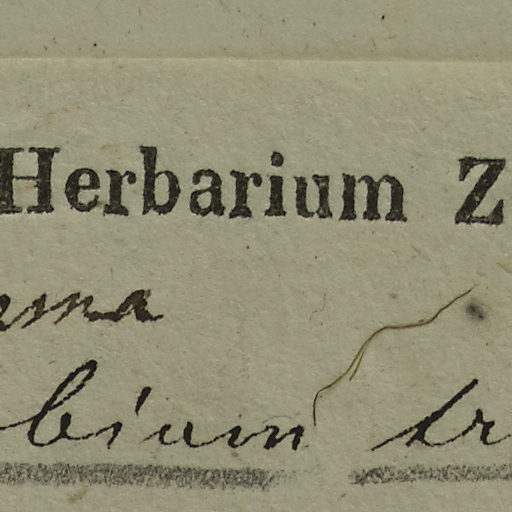 Herbarium Z
ma
bium tr